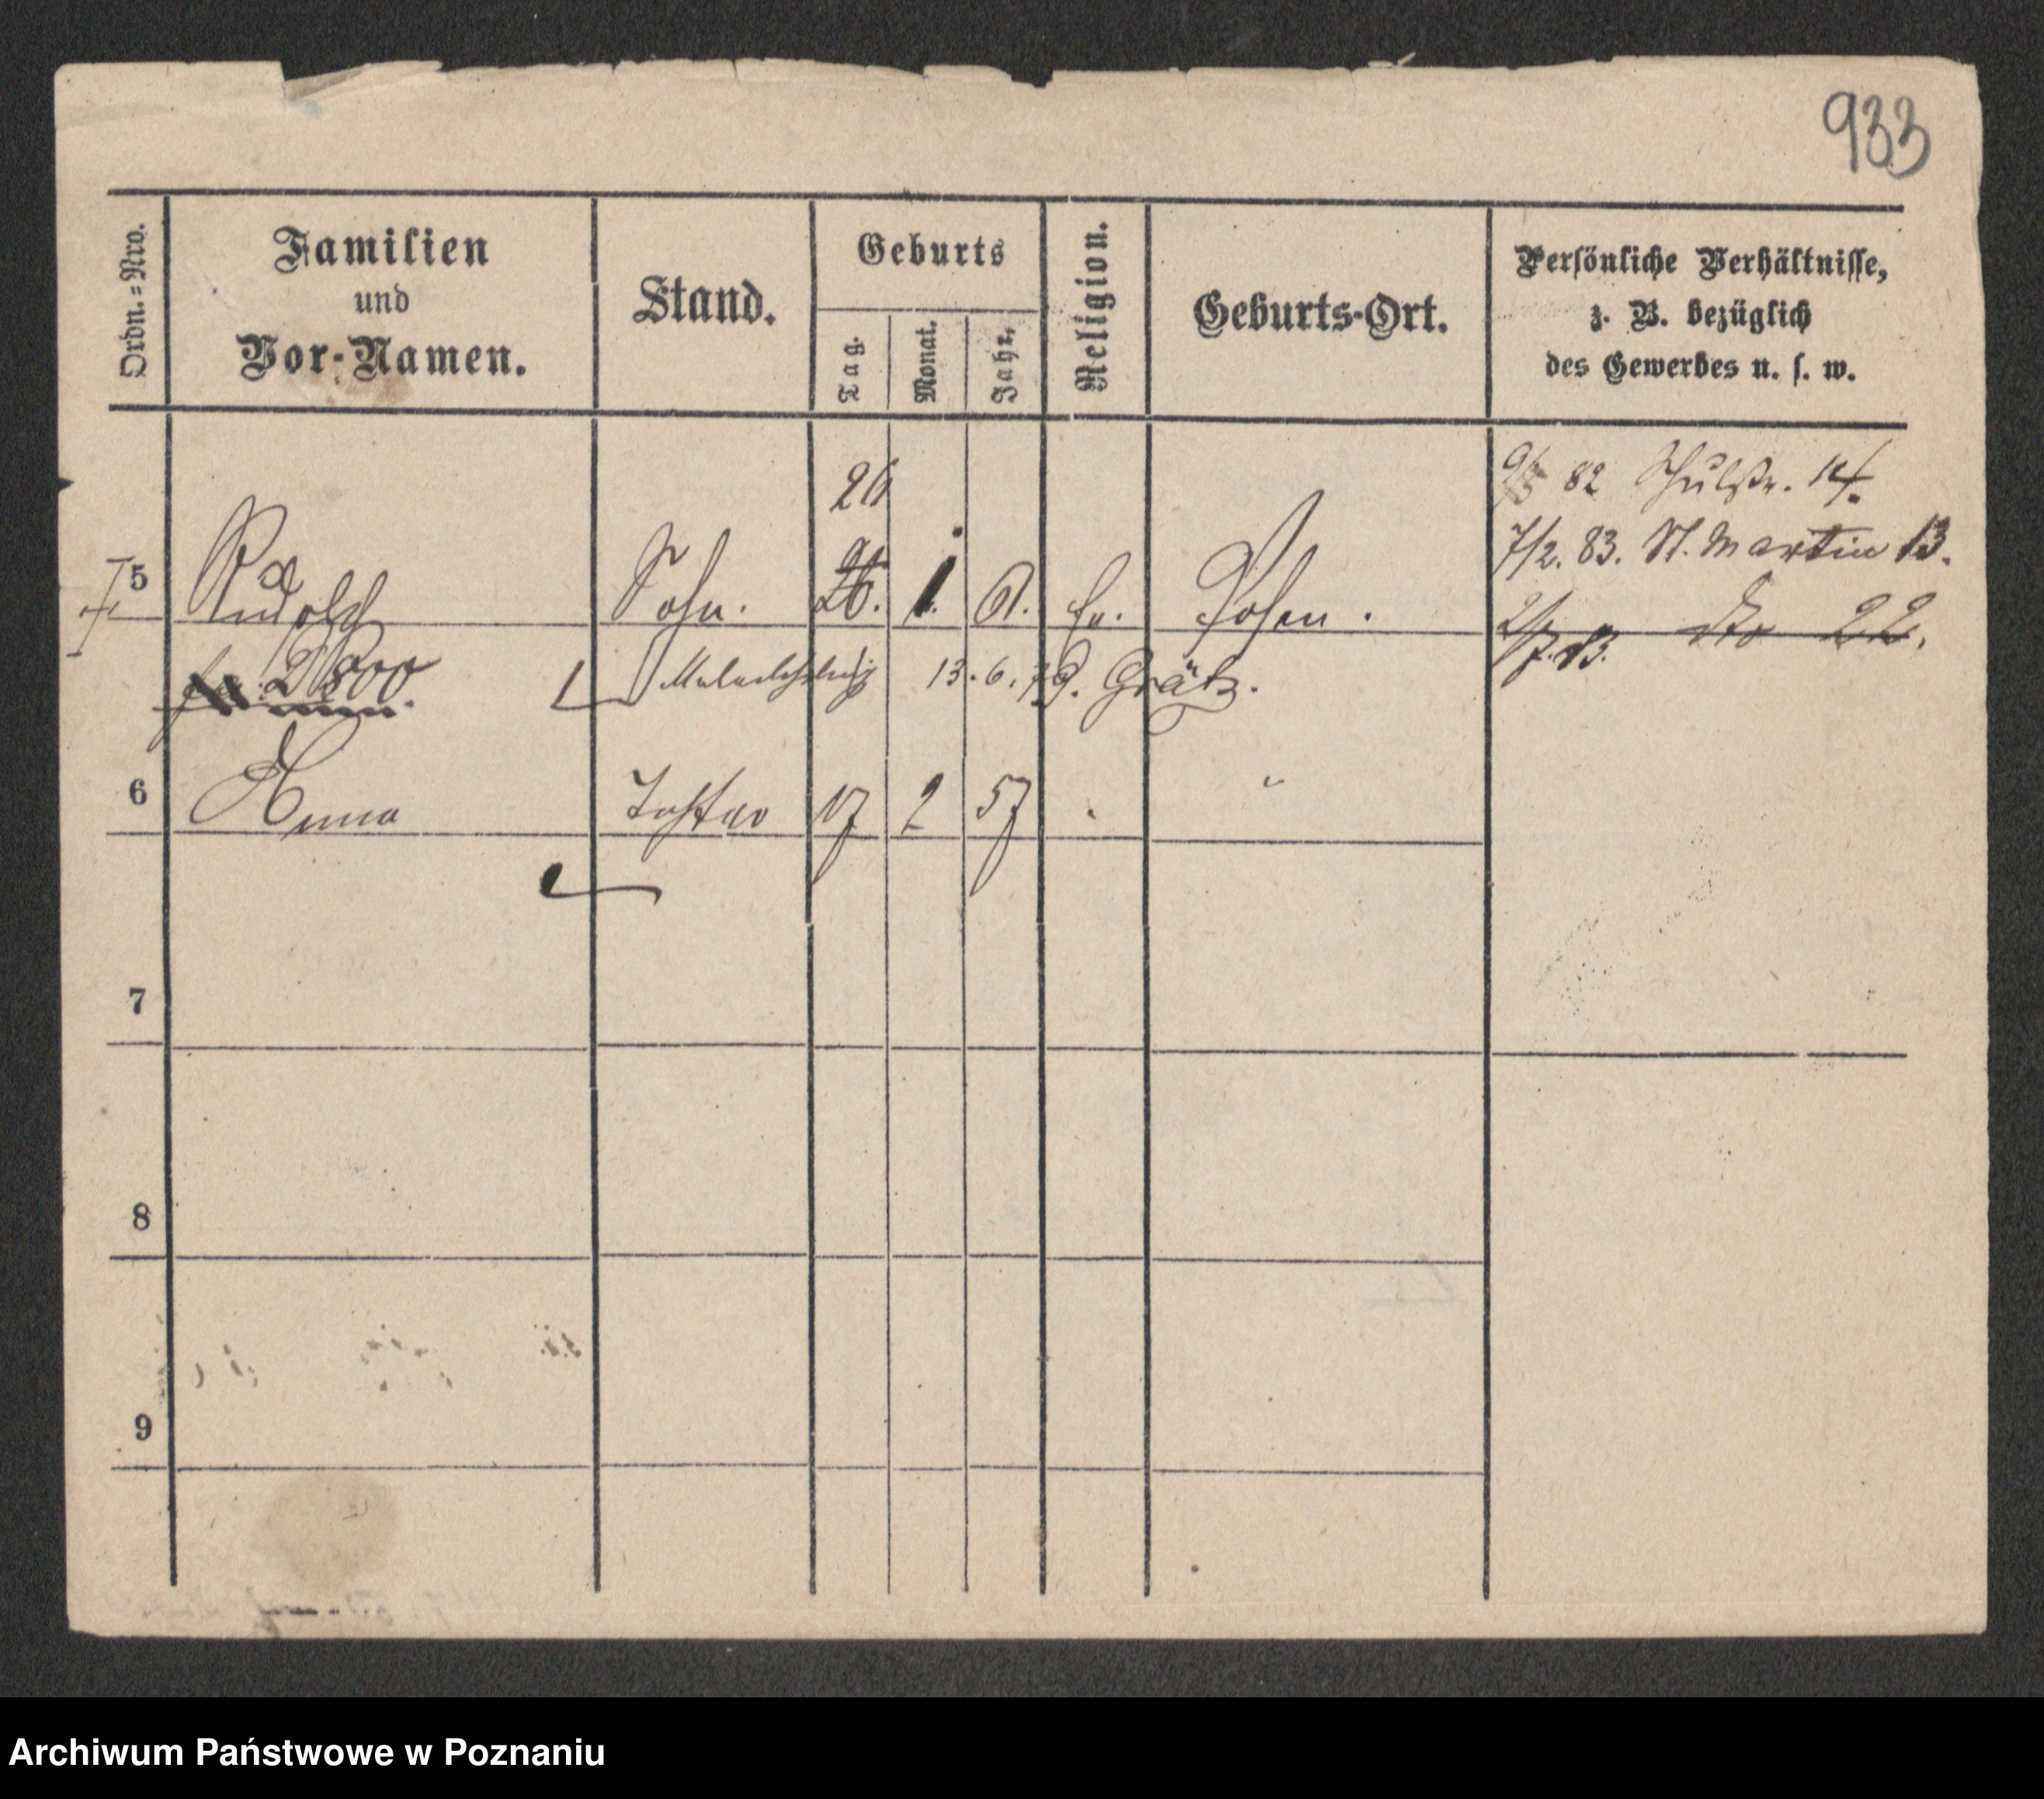 933
Ordn.=Nro.
Familien
und
Vor-Namen.
Stand.
Geburts
Tag.
Monat.
Jahr.
Religion.
Geburts-Ort.
Persönliche Verhältnisse,
z. B. bezüglich
des Gewerbes u. s. w.
82 Schulstr. 14.
7/2. 83. St. Martin 13.
2/7. 83. dto 22.
26
5 Rudolph Sohn. 26. 1. 61. Ev. Posen.
2800
13. 6. 79. Grätz.
6 Anna Tochter 17 2 57 "
7
8
9
Archiwum Państwowe w Poznaniu